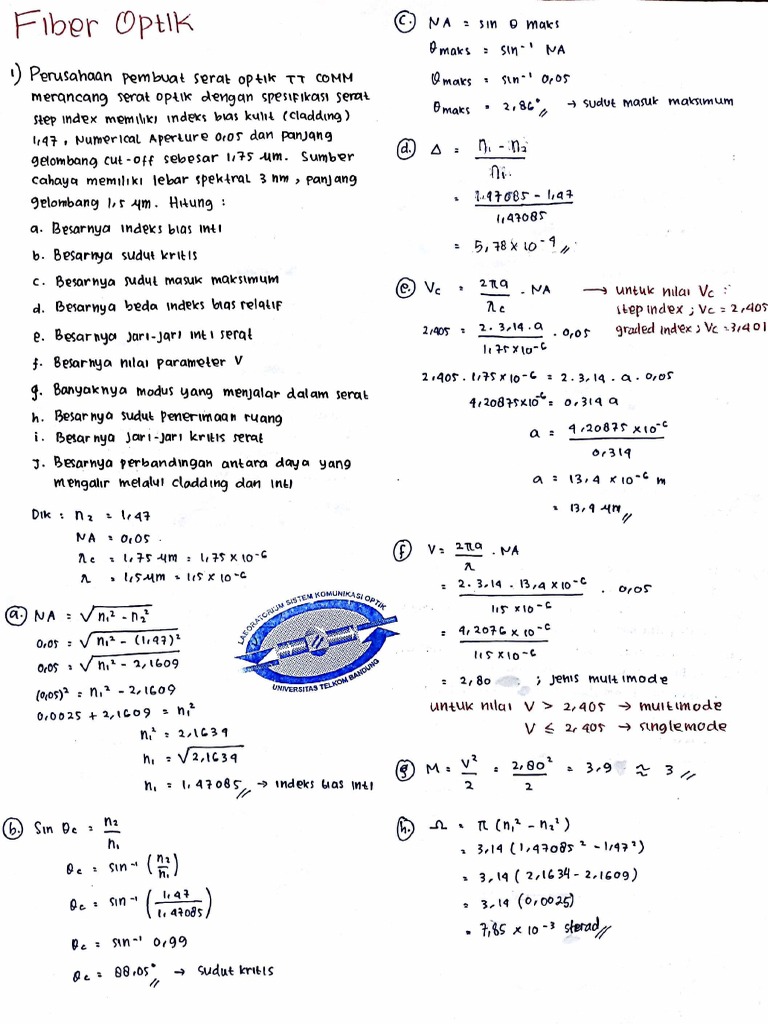 Fiber Optik
1) Perusahaan pembuat serat optik TT COMM
merancang serat optik dengan spesifikasi serat
step index memiliki indeks bias kulit (cladding)
1,47, Numerical Aperture 0,05 dan panjang
gelombang cut-off sebesar 1,75 μm. Sumber
cahaya memiliki lebar spektral 3 nm, panjang
gelombang 1,5 μm. Hitung :
a. Besarnya indeks bias inti
b. Besarnya sudut kritis
c. Besarnya sudut masuk maksimum
d. Besarnya beda indeks bias relatif
e. Besarnya jari-jari inti serat
f. Besarnya nilai parameter V
g. Banyaknya modus yang menjalar dalam serat
h. Besarnya sudut penerimaan ruang
i. Besarnya jari-jari kritis serat
J. Besarnya perbandingan antara daya yang
mengalir melalui cladding dan inti
Dik : n₂ = 1,47
NA = 0,05
λc = 1,75 μm = 1,75 x 10⁻⁶
λ = 1,5 μm = 1,5 x 10⁻⁶
a. NA = √n₁² - n₂²
0,05 = √n₁² - (1,47)²
0,05 = √n₁² - 2,1609
(0,05)² = n₁² - 2,1609
0,0025 + 2,1609 = n₁²
n₁² = 2,1634
n₁ = √2,1634
n₁ = 1,47085 → indeks bias inti
b. Sin θc = n₂/n₁
θc = sin⁻¹ (n₂/n₁)
θc = sin⁻¹ (1,47/1,47085)
θc = sin⁻¹ 0,99
θc = 88,05° → sudut kritis
LABORATORIUM SISTEM KOMUNIKASI OPTIK
UNIVERSITAS TELKOM BANDUNG
c. NA = sin θ maks
θmaks = sin⁻¹ NA
θmaks = sin⁻¹ 0,05
θmaks = 2,86° → sudut masuk maksimum
d. Δ = n₁ - n₂/n₁
= 1,47085 - 1,47/1,47085
= 5,78 x 10⁻⁴
e. Vc = 2πa/λc . NA → untuk nilai Vc :
step index ; Vc = 2,405
graded index ; Vc = 3,401
2,405 = 2. 3,14 . a/1,75 x 10⁻⁶ . 0,05
2,405 . 1,75 x 10⁻⁶ = 2 . 3,14 . a . 0,05
4,20875 x 10⁻⁶ = 0,314 a
a = 4,20875 x 10⁻⁶/0,314
a = 13,4 x 10⁻⁶ m
= 13,4 μm
f. V = 2πa/λ . NA
= 2. 3,14 . 13,4 x 10⁻⁶/1,5 x 10⁻⁶ . 0,05
= 4,2076 x 10⁻⁶/1,5 x 10⁻⁶
= 2,80 ; jenis multimode
untuk nilai V > 2,405 → multimode
V ≤ 2,405 → singlemode
g. M = V²/2 = 2,80²/2 = 3,9 ≈ 3
h. Ω = π (n₁² - n₂²)
= 3,14 (1,47085² - 1,47²)
= 3,14 (2,1634 - 2,1609)
= 3,14 (0,0025)
= 7,85 x 10⁻³ sterad